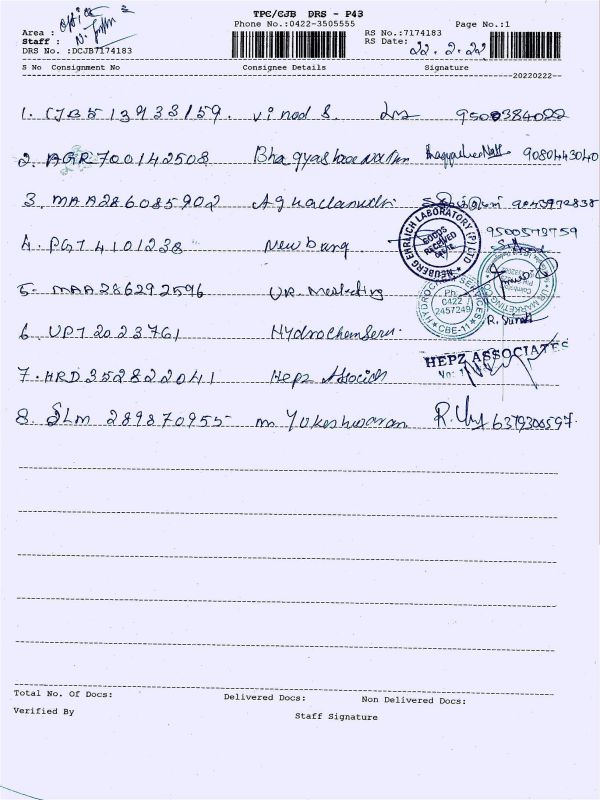 TPC/CJB DRS - P43
Phone No.:0422-3505555
Page No.:1
Area :
office
Staff :
DRS No. :DCJB7174183
RS No.:7174183
RS Date:
22.2.22
S No Consignment No Consignee Details Signature
20220222
1. CJB513933159. Vinod S. 9500384022
2. AGR700142508 9080443040
3. MAA286085902
4. PGT4101238 Newburg 9500579759
NEUBERG EHRLICH LABORATORY (P) LTD
GOODS RECEIVED
5. MAA286292596 V.R. Marketing
HYDROCHEM SERVICES
Ph: 0422 2457249
CBE-11
VR MARKETING
6. UPT2023761 Hydrochem Serv. R. Suresh
7. HRD352822041 Hepz Associates
HEPZ ASSOCIATES
8. SLM 289870955 M Yukeshwaran 6379300597.
Total No. Of Docs: Delivered Docs: Non Delivered Docs:
Verified By
Staff Signature